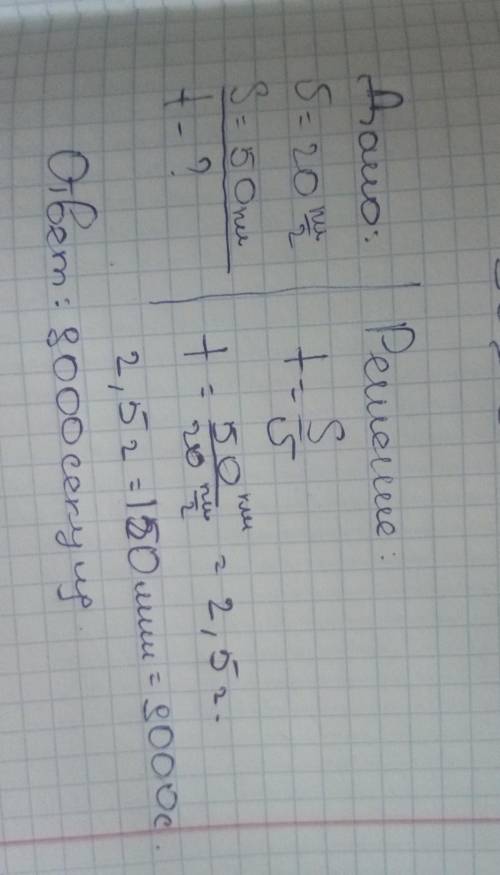 Дано:
S = 20 км/г
S = 50 км
t - ?
Решение:
t = S/S
t = 50 км / 20 км/г = 2,5 г.
2,5 г = 150 мин = 9000 с.
Ответ: 9000 секунд.